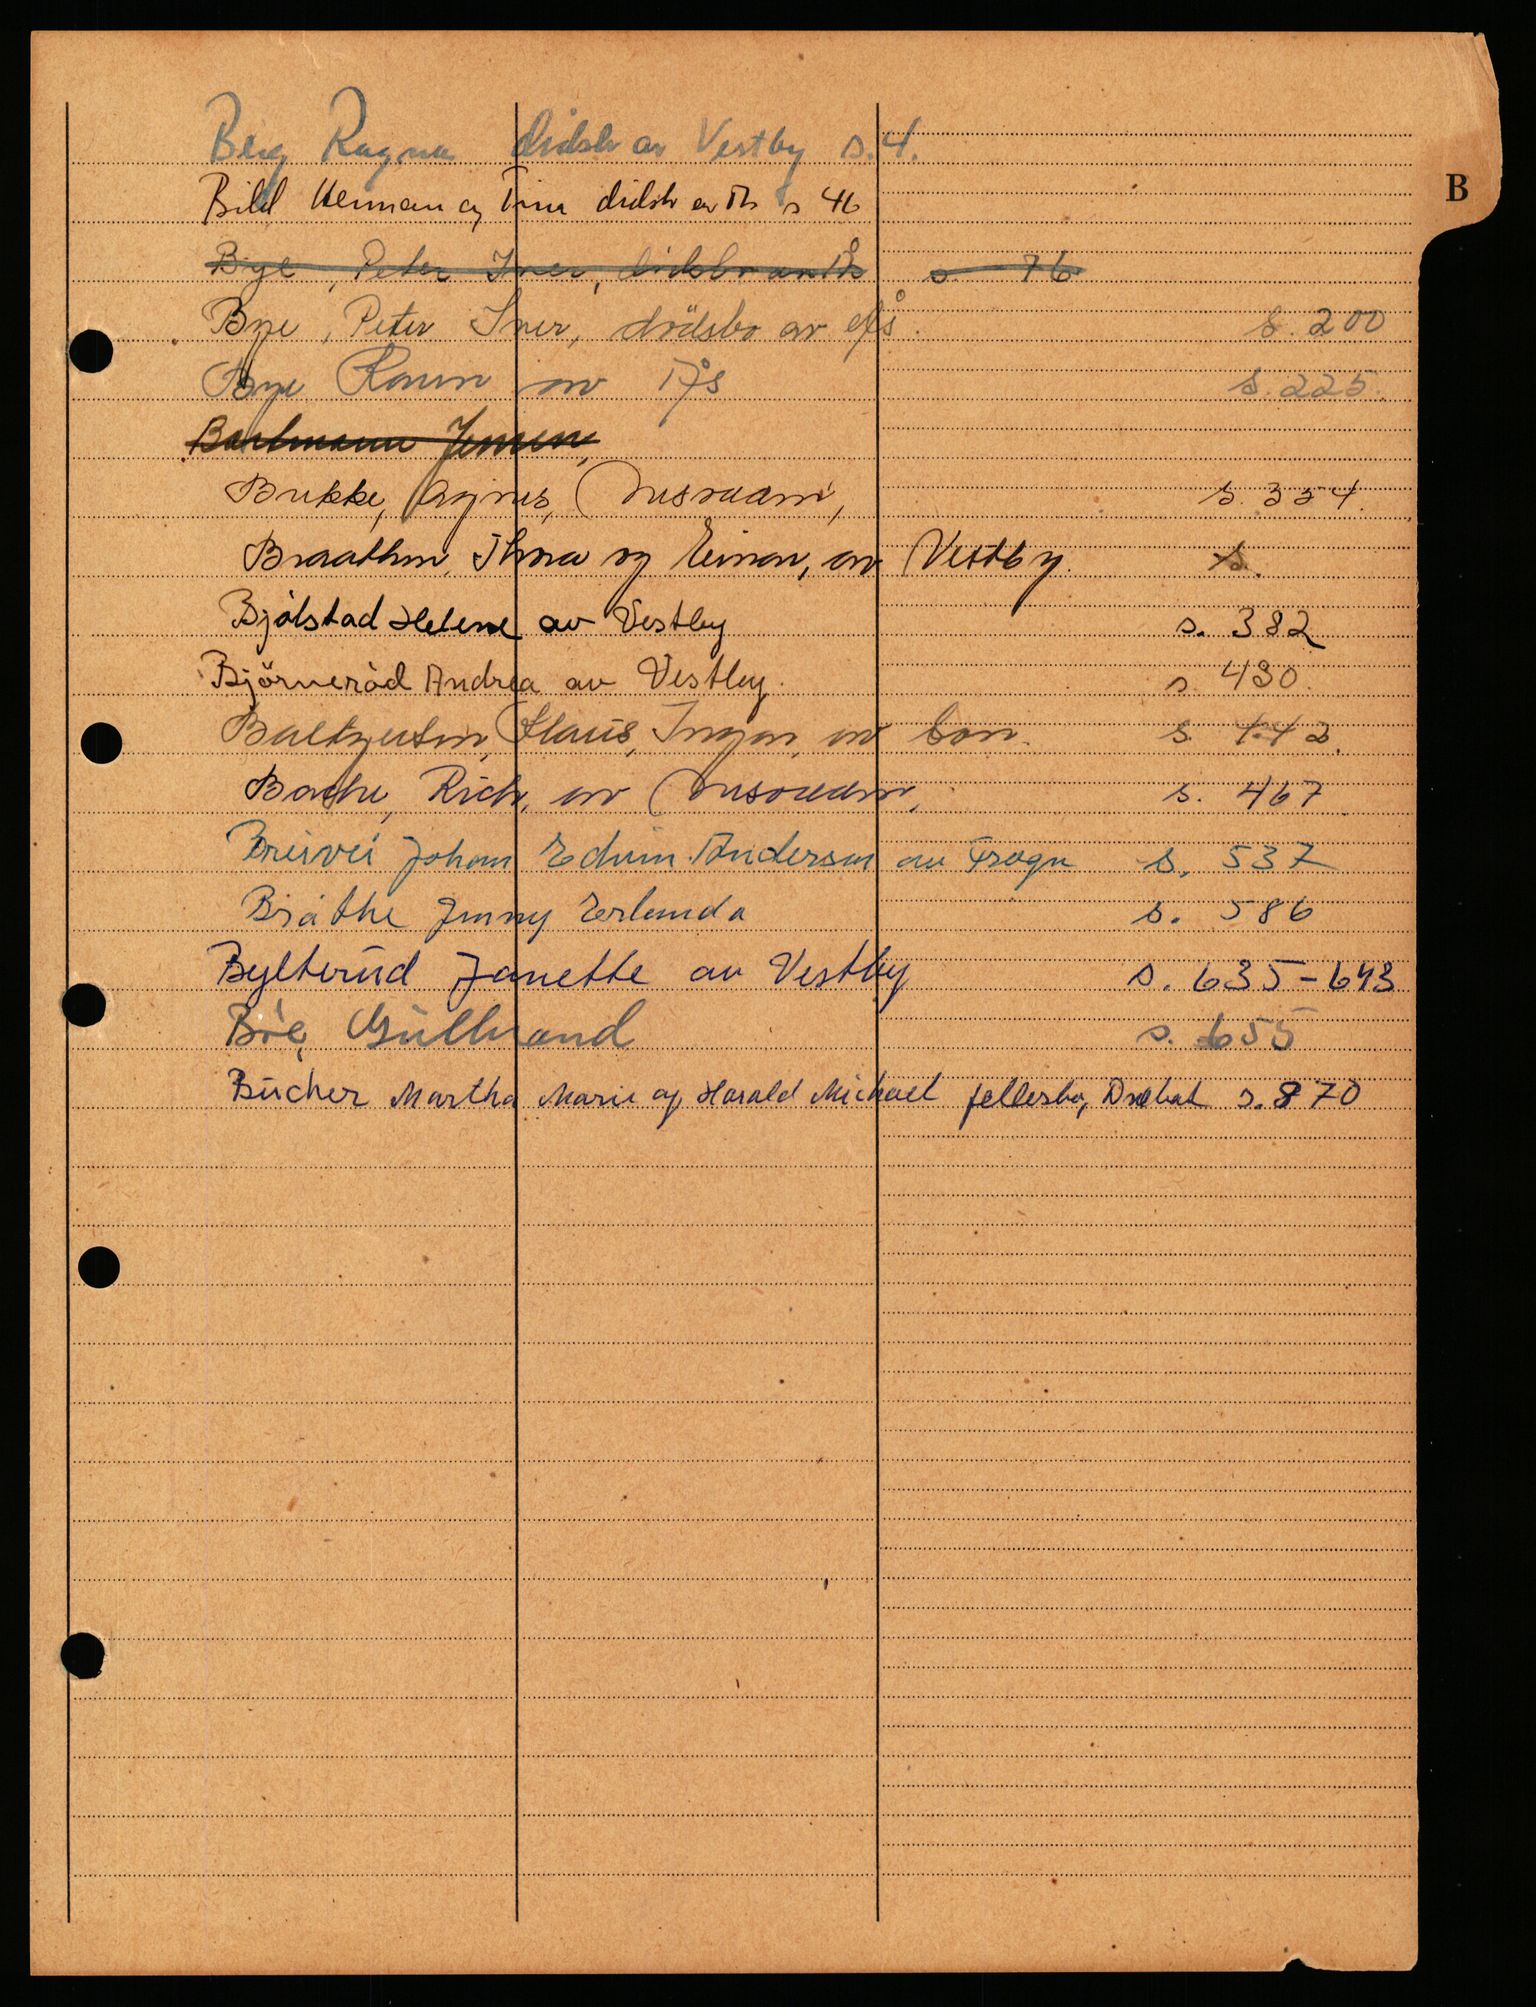 B
Berg Ragna dødsb av Vestby s. 4.
Bild Herman og Tina dødsb av Ås s 46
Bye, Peter Iver, dødsbo av Ås s 76
Bye, Peter Iver, dødsbo av Ås. s. 200
Bye Karin av Ås s. 225.
Jensen,
Bukke, Agnes, s. 354.
Braathen, Thora og Einar, av Vestby. s.
Bjølstad Helene av Vestby s. 382
Björneröd Andrea av Vestby. s. 430.
Baltzersen, Klaus, Ingar, av Son. s. 442.
Bache, Rich, av s. 467
Breivei Johan Edvin Anderson av Frogn s. 537
Bråthe Jenny Erlanda s. 586
Bylterud Janette av Vestby s. 635-643
Bøe, Gulbrand s. 655
Bücher Martha Marie og Harald Michael fellesbo, Drøbak s. 870